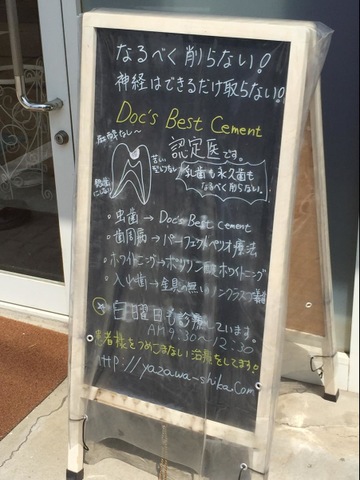 なるべく削らない!
神経はできるだけ取らない!
Doc's Best Cement
認定医です。
乳歯も永久歯も
なるべく削らない。
・虫歯→Doc's Best Cement
・歯周病→パーフェクトペリオ療法
・ホワイトニング→ポリリン酸ホワイトニング
・入れ歯→金具の無いノンクラスプ義歯
日曜日も診療しています。
AM9:30~12:30
患者様をつめこまない治療をしてます。
http://yazawa-shika.com